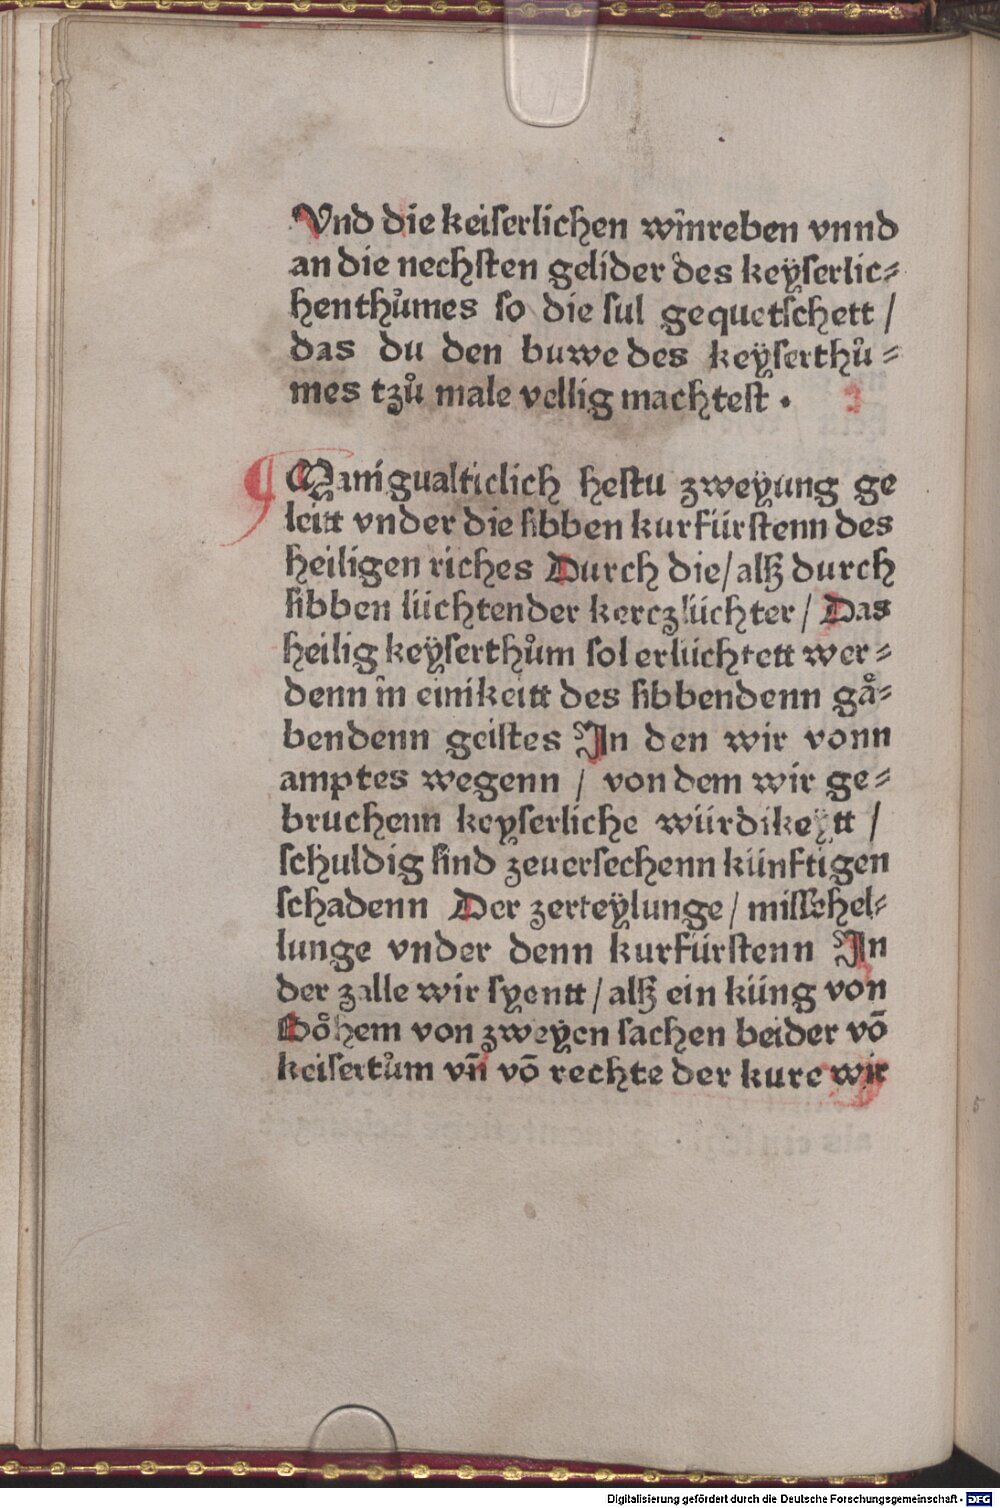 Vnd die keiſerlichen wînreben vnnd
an die nechſten gelider des keyſerlic⸗
henthůmes ſo die ſul gequetſchett /
das du den buwe des keyſerthů⸗
mes tzů male vellig machteſt .
Manigualticlich heſtu zweyung ge
leitt vnder die ſibben kurfürſtenn des
heiligen riches Durch die / alſz durch
ſibben lüchtender kerczlüchter / Das
heilig keyſerthům ſol erlüchtett wer⸗
denn în einikeitt des ſibbendenn gå⸗
bendenn geiſtes In den wir vonn
amptes wegenn / von dem wir ge⸗
bruchenn keyſerliche würdikeytt /
ſchuldig ſind zeuerſechenn künftigen
ſchadenn Der zerteylunge / miſſehel⸗
lunge vnder denn kurfürſtenn In
der zalle wir ſyentt / alſz ein küng von
Bo̊hem von zweyen ſachen beider vō
keiſertům vn̄ vō rechte der kure wir
5
Digitalisierung gefördert durch die Deutsche Forschungsgemeinschaft - DFG